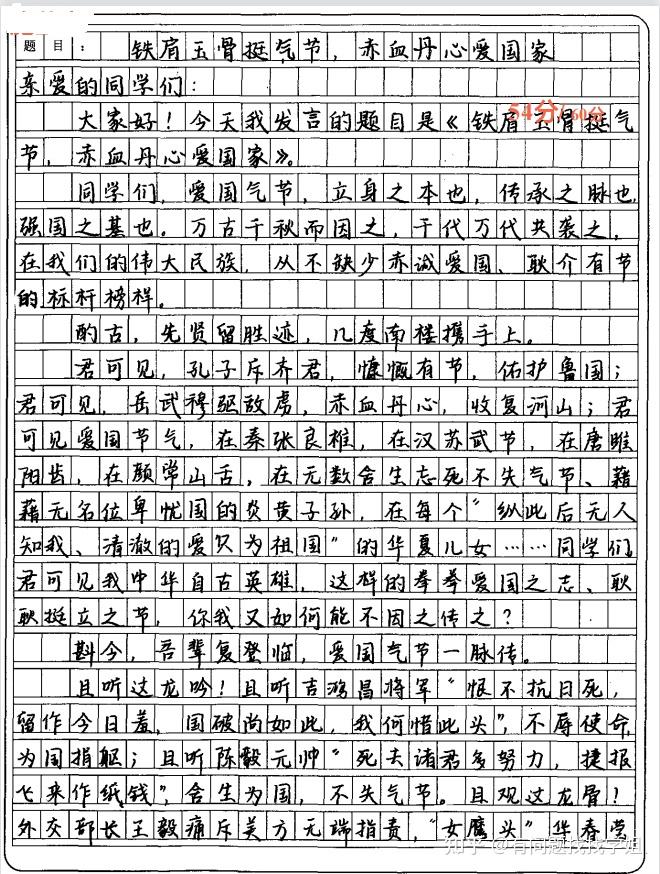 题目：铁肩玉骨挺气节，赤血丹心爱国家
亲爱的同学们：
54分/60分
大家好！今天我发言的题目是《铁肩玉骨挺气
节，赤血丹心爱国家》。
同学们，爱国气节，立身之本也，传承之脉也，
强国之基也。万古千秋而因之，千代万代共袭之。
在我们的伟大民族，从不缺少赤诚爱国、耿介有节
的标杆榜样。
酌古，先贤留胜迹，几度南楼携手上。
君可见，孔子斥齐君，慷慨有节，佑护鲁国；
君可见，岳武穆驱敌虏，赤血丹心，收复河山；君
可见爱国节气，在秦张良椎，在汉苏武节，在唐睢
阳齿，在颜常山舌，在无数舍生忘死不失气节、藉
藉无名位卑忧国的炎黄子孙，在每个“纵此后无人
知我、清澈的爱只为祖国”的华夏儿女……同学们
君可见我中华自古英雄，这样的拳拳爱国之志、耿
耿挺立之节，你我又如何能不因之传之？
斟今，吾辈复登临，爱国气节一脉传。
且听这龙吟！且听吉鸿昌将军“恨不抗日死，
留作今日羞，国破尚如此，我何惜此头”，不辱使命，
为国捐躯；且听陈毅元帅“死去诸君多努力，捷报
飞来作纸钱”，舍生为国，不失气节。且观这龙骨！
外交部长王毅痛斥美方无端指责，“女魔头”华春莹
知乎 @有问题找找学姐